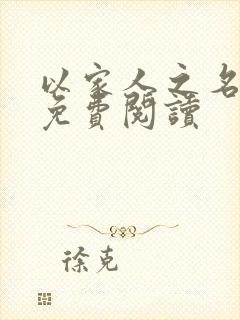 以家人之名
免費閱讀
徐克